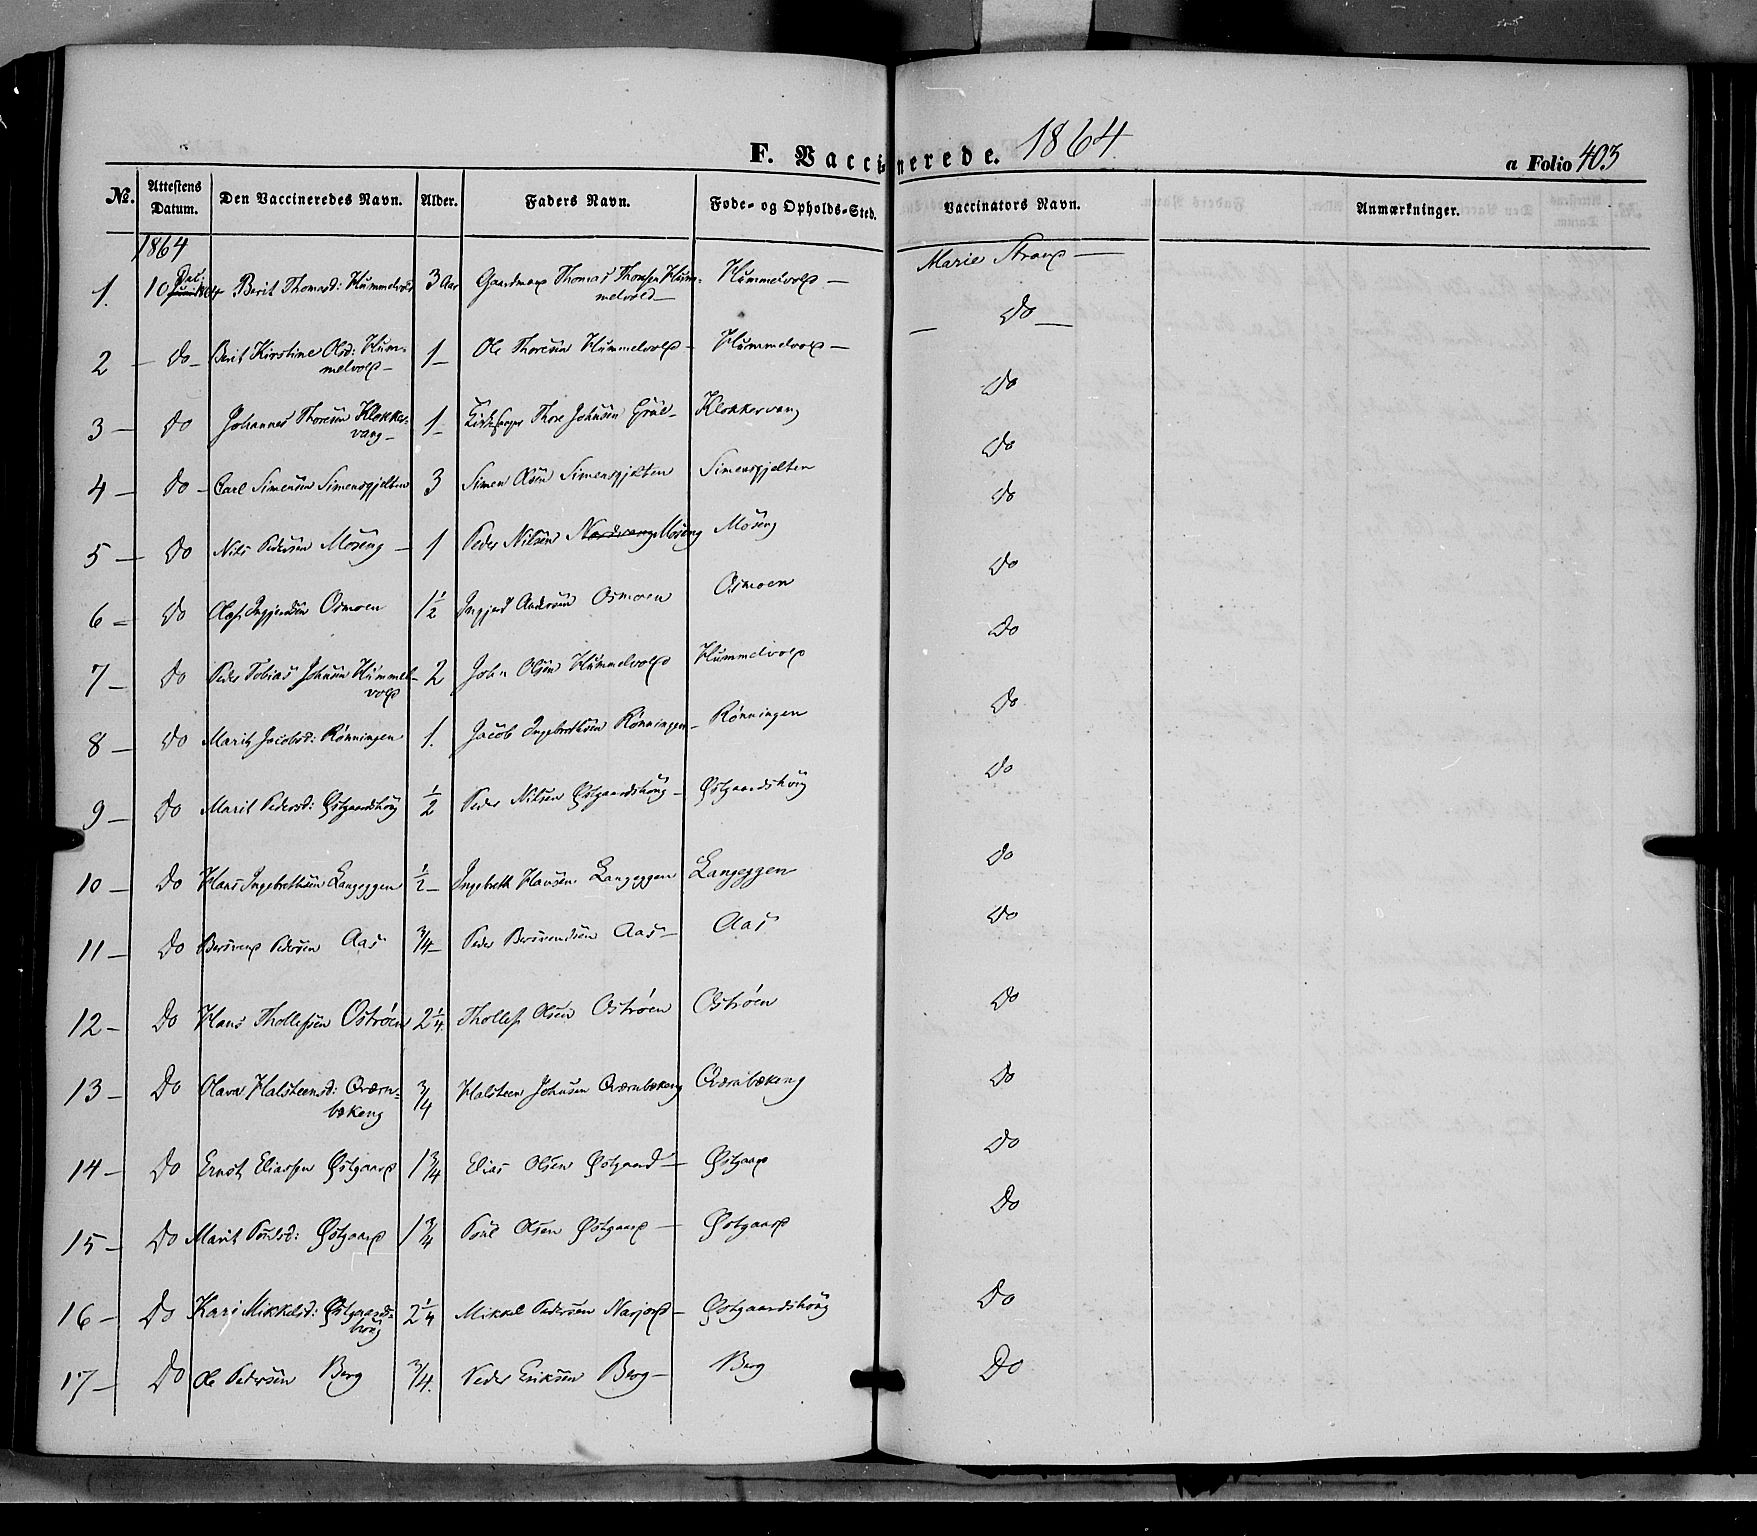 F. Vaccinerede. 1864
a Folio 403
No. Attestens Datum. Den Vaccineredes Navn. Alder. Faders Navn. Føde- og Opholds-Sted. Vaccinators Navn. Anmærkninger.
1864
1. 10 Berit Thomasd: Hummelvold 3 Aar Gaardmand Thomas Thomsen Hum- Hummelvold — Marie Strand —
melvold —
2 — Do — Berit Kirstine Olsd: Hum- 1 — Ole Thoresen Hummelvold — Hummelvold — — Do —
melvold —
3 — Do Johannes Thoresen Klokker- 1 — Kirkesanger Thore Johnsen Klokkervang Do
vang —
4 — Do — Carl Simensen Simensgjelten 3 Simen Olsen Simensgjelten Simensgjelten Do
5 — Do Nils Pedersen Moseng — 1 Peder Nilsen Nordvang Moseng Moseng Do
6 — Do Ingjerdsen Osmoen 1½ Andersen Osmoen Osmoen Do
7 — Do Peder Tobias Johnsen Hummel- 2 John Olsen Hummelvold Hummelvold Do
vold
8 — Do Marit Jacobsd: Rønningen 1. Jacob Ingebrethsen Rønningen — Rønningen Do
9 — Do Marit Pedersd: Østgaardshoug ½ Peder Nilsen Østgaardshoug — Østgaardshoug Do
10 — Do Hans Ingebrethsen Langeggen ½ — Ingebreth Hansen Langeggen Langeggen Do
11 — Do Bersvend Pedersen Aas ¾ — Peder Bersvendsen Aas — Aas Do
12 — Do Hans Thollefsen Ostrøen 2¼ Thollef Olsen Ostrøen Ostrøen Do
13 — Do Olava Halsteensd: Qværn- ¾ Halsteen Johnsen Qværnbækeng Qværnbækeng Do
bækeng
14 — Do Ernst Eliassen Østgaard 1¾ Elias Olsen Østgaard — Østgaard Do
15 — Do Marit Poulsd: Østgaard 1¾ Poul Olsen Østgaard — Østgaard Do
16 — Do Kari Mikkelsd: Østgaards- 2¼ Mikkel Pedersen Narjord — Østgaardshoug Do
houg
17 — Do Ole Pedersen Berg ¾. Peder Eriksen Berg — Berg Do